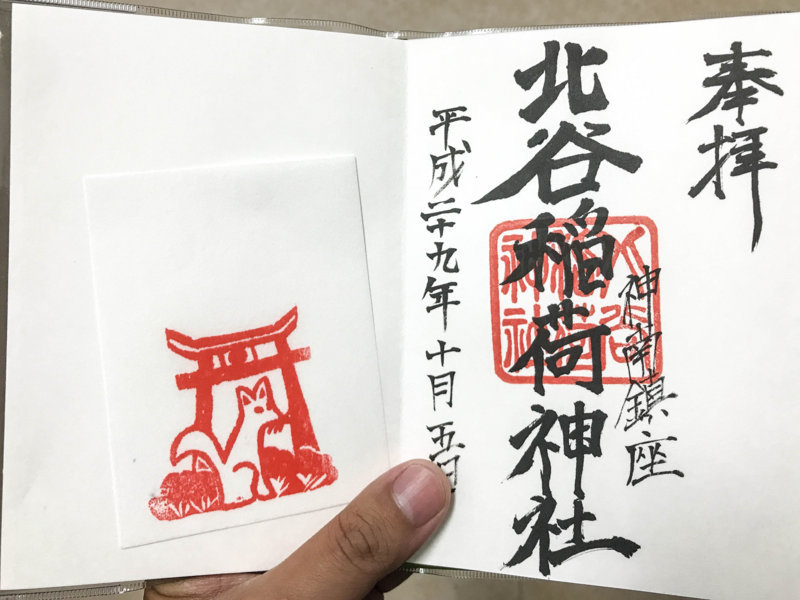 奉拝
神南鎮座
北谷稲荷神社
平成二十九年十月五日